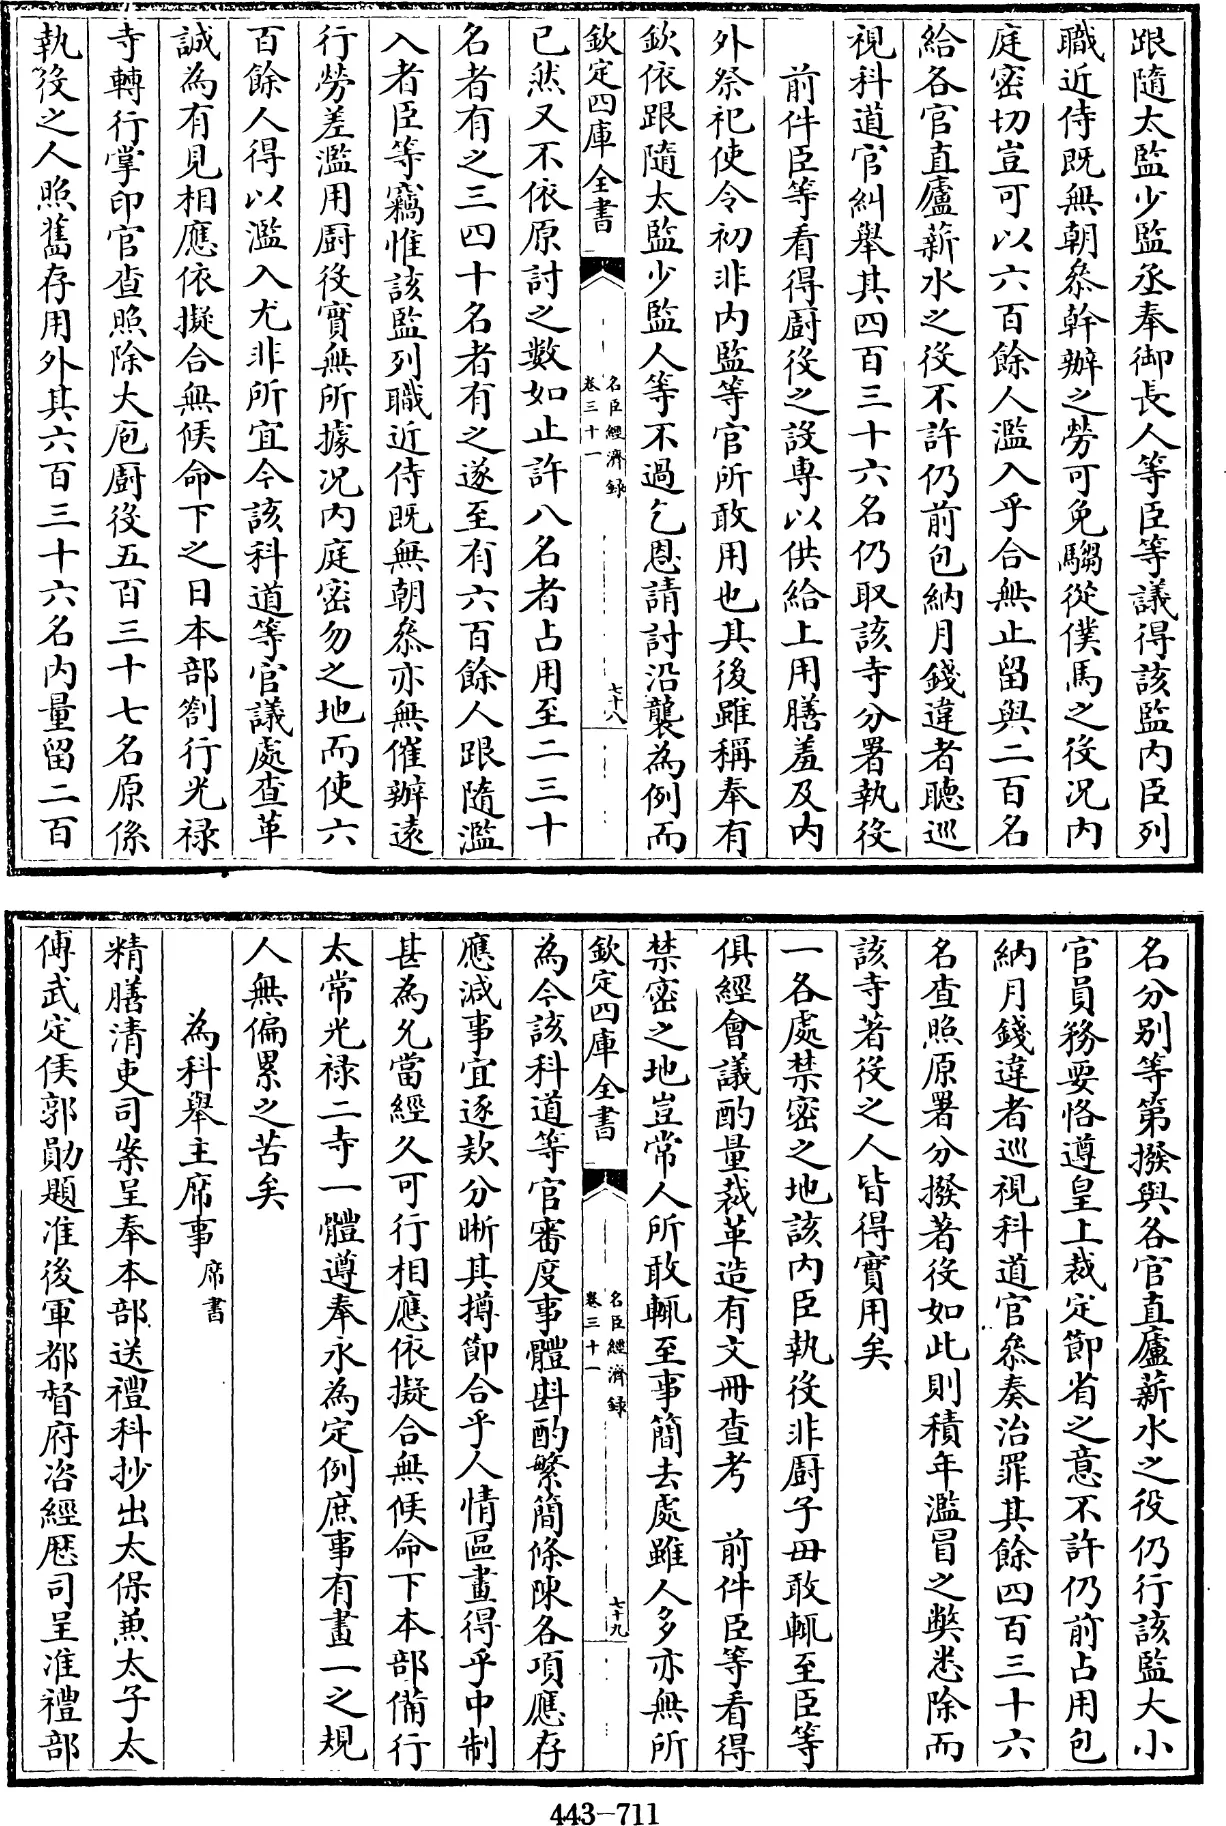 跟隨太監少監丞奉御長人等臣等議得該監内臣列
職近侍既無朝叅幹辦之勞可免騶從僕馬之役况内
庭密切豈可以六百餘人濫入乎合無止留與二百名
給各官直廬薪水之役不許仍前包納月錢違者聽巡
視科道官糾舉其四百三十六名仍取該寺分署執役
前件臣等看得厨役之設專以供給上用膳羞及内
外祭祀使令初非内監等官所敢用也其後雖稱奉有
欽依跟隨太監少監人等不過乞恩請討沿襲為例而
欽定四庫全書
名臣經濟録
卷三十一
七十八
已然又不依原討之數如止許八名者占用至二三十
名者有之三四十名者有之遂至有六百餘人跟隨濫
入者臣等竊惟該監列職近侍既無朝叅亦無催辦遠
行勞差濫用厨役實無所據况内庭密勿之地而使六
百餘人得以濫入尤非所宜今該科道等官議處查革
誠為有見相應依擬合無候命下之日本部劄行光禄
寺轉行掌印官查照除大庖厨役五百三十七名原係
執役之人照舊存用外其六百三十六名内量留二百
名分别等第撥與各官直廬薪水之役仍行該監大小
官員務要恪遵皇上裁定節省之意不許仍前占用包
納月錢違者巡視科道官叅奏治罪其餘四百三十六
名查照原署分撥著役如此則積年濫冒之獘悉除而
該寺著役之人皆得實用矣
一各處禁密之地該内臣執役非厨子毋敢輒至臣等
俱經會議酌量裁革造有文冊查考　前件臣等看得
禁密之地豈常人所敢輒至事簡去處雖人多亦無所
欽定四庫全書
名臣經濟録
卷三十一
七十九
為今該科道等官審度事體斟酌繁簡條陳各項應存
應減事宜逐欵分晰其撙節合乎人情區畫得乎中制
甚為允當經久可行相應依擬合無候命下本部備行
太常光禄二寺一體遵奉永為定例庶事有畫一之規
人無偏累之苦矣
為科舉主席事席書
精膳清吏司案呈奉本部送禮科抄出太保兼太子太
傅武定侯郭勛題准後軍都督府咨經歷司呈准禮部
443-711